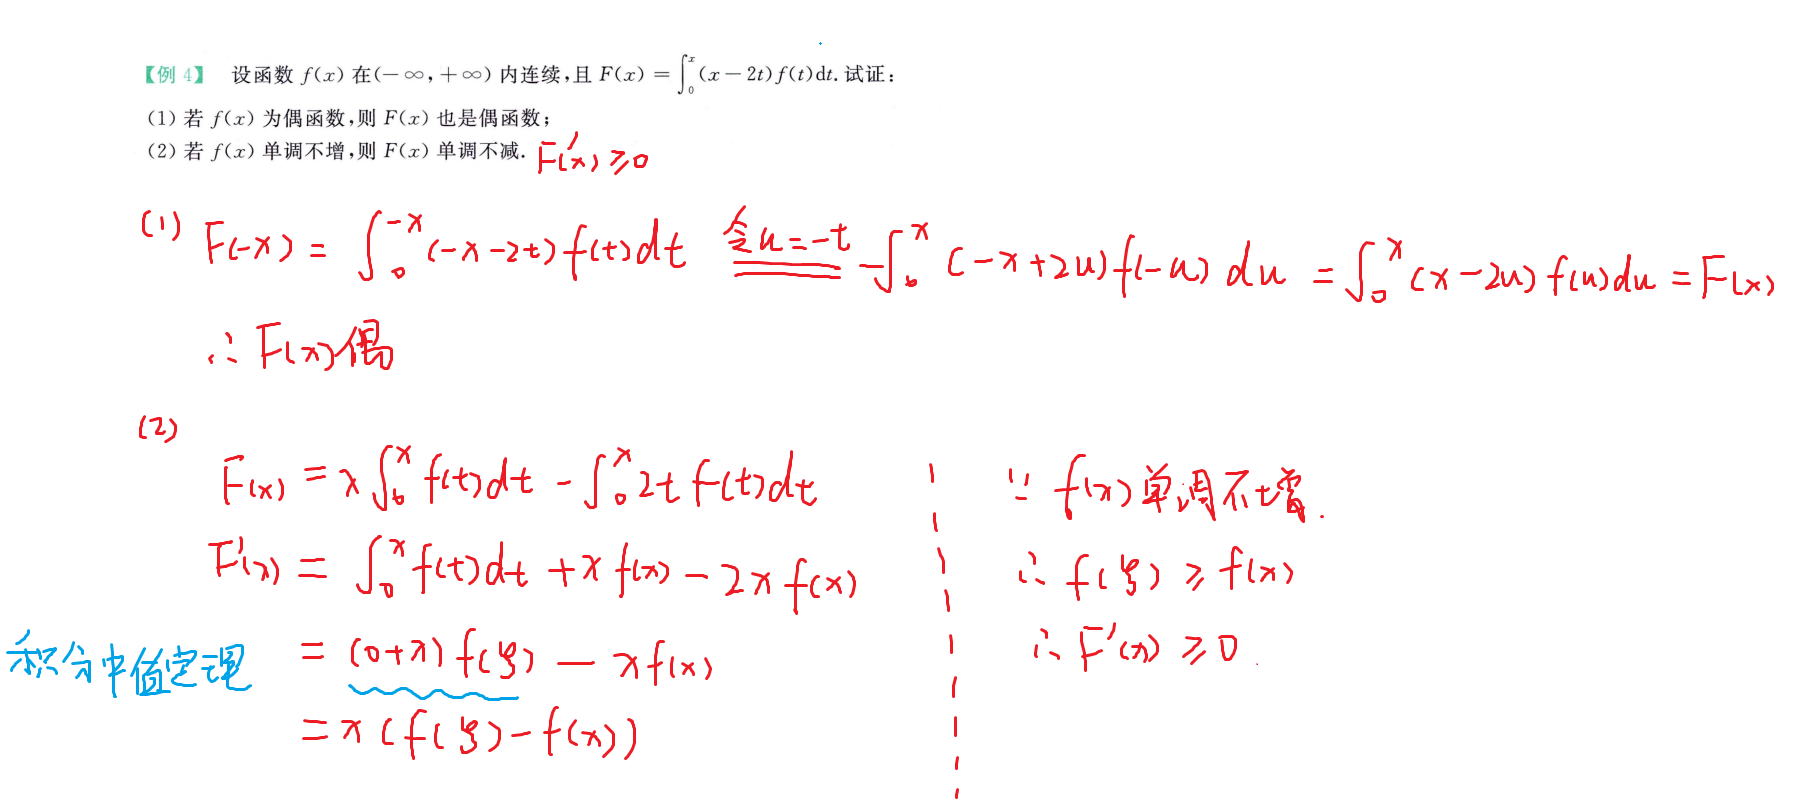 【例 4】 设函数 f(x) 在(－∞,＋∞) 内连续,且 F(x) = ∫₀ˣ (x－2t) f(t)dt. 试证:
(1) 若 f(x) 为偶函数,则 F(x) 也是偶函数;
(2) 若 f(x) 单调不增,则 F(x) 单调不减. F'(x) ≥ 0
(1) F(-x) = ∫₀⁻ˣ (-x-2t) f(t)dt 令u=-t -∫₀ˣ (-x+2u) f(-u) du = ∫₀ˣ (x-2u) f(u)du = F(x)
∴ F(x)偶
(2)
F(x) = x∫₀ˣ f(t)dt - ∫₀ˣ 2t f(t)dt
F'(x) = ∫₀ˣ f(t)dt + x f(x) - 2x f(x)
积分中值定理 = (0+x) f(ξ) - x f(x)
= x (f(ξ) - f(x))
∵ f(x) 单调不增.
∴ f(ξ) ≥ f(x)
∴ F'(x) ≥ 0.